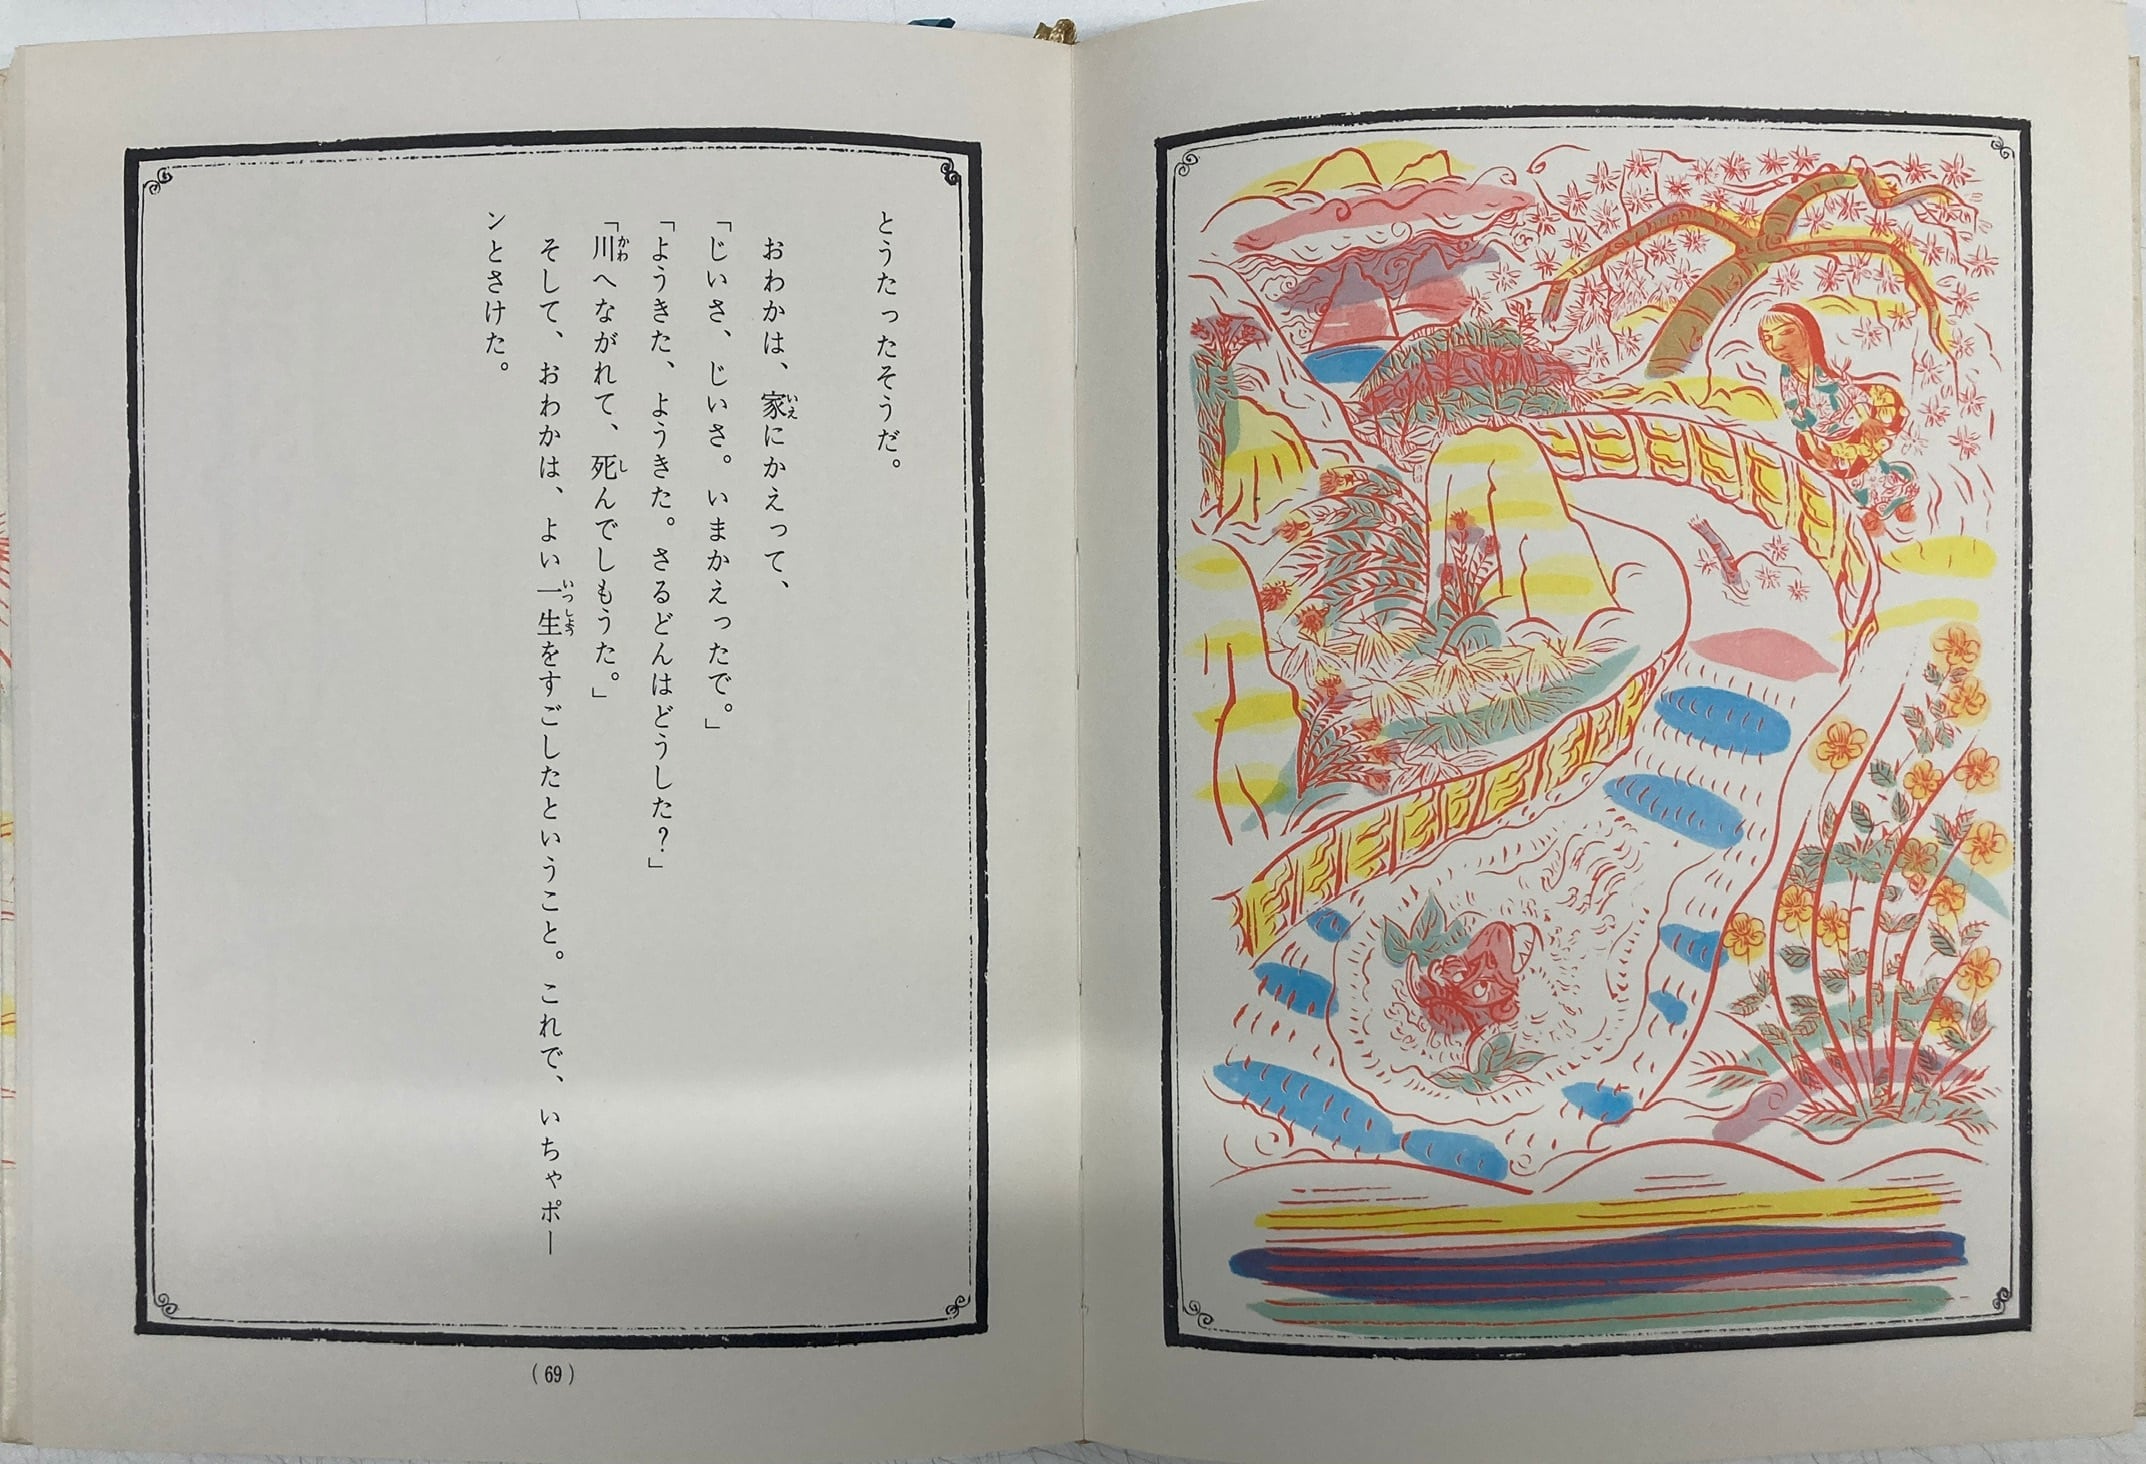 とうたったそうだ。
おわかは、家にかえって、
「じいさ、じいさ。いまかえったで。」
「ようきた、ようきた。さるどんはどうした?」
「川へながれて、死んでしもうた。」
そして、おわかは、よい一生をすごしたということ。これで、いちゃポー
ンとさけた。
(69)